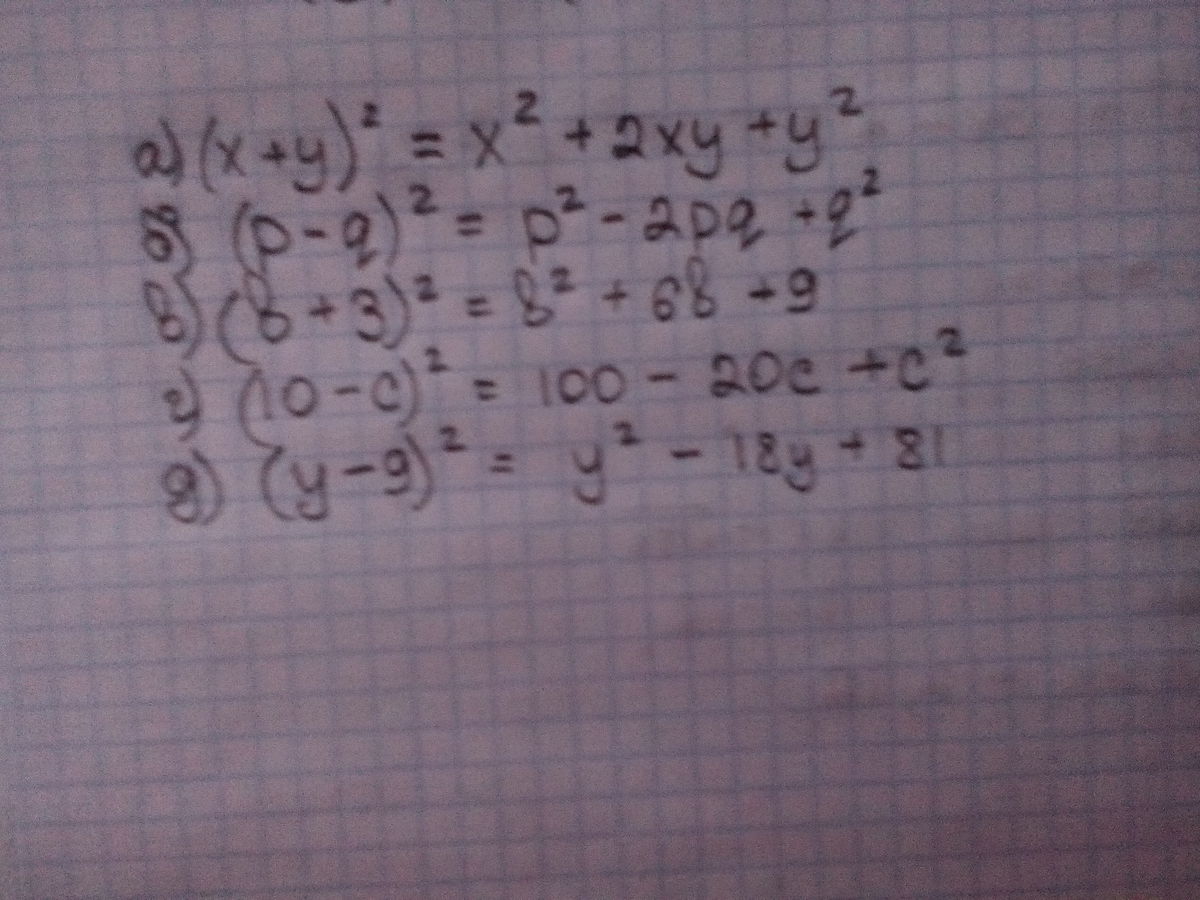 а) (x+y)² = x² + 2xy + y²
б) (p-q)² = p² - 2pq + q²
в) (b+3)² = b² + 6b + 9
г) (10-c)² = 100 - 20c + c²
д) (y-9)² = y² - 18y + 81